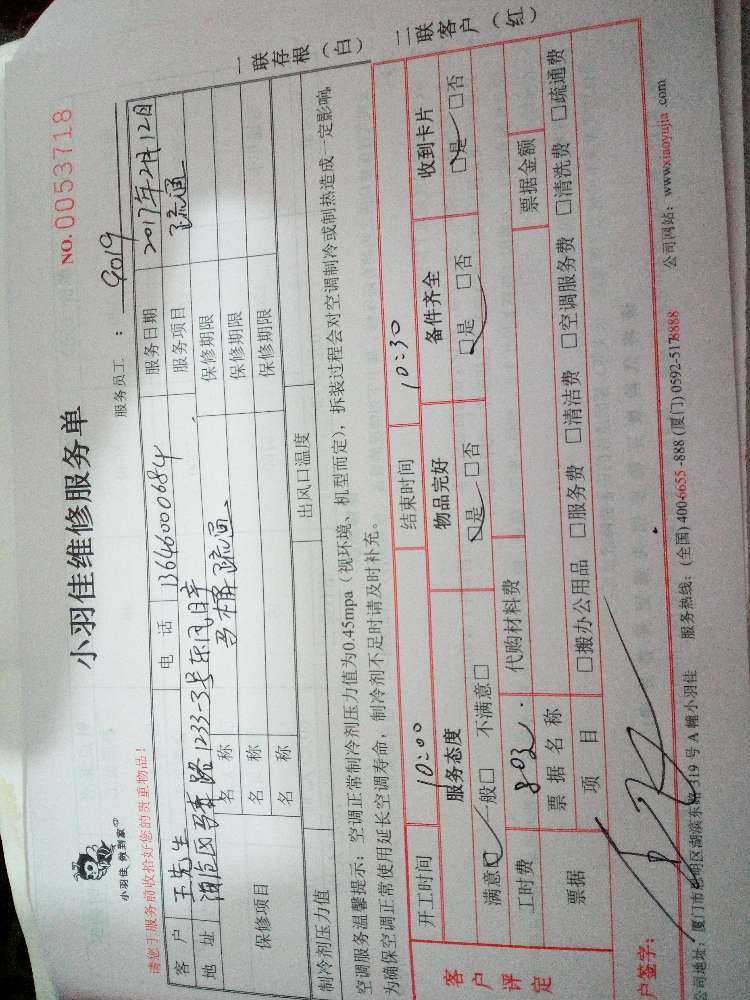 NO.0053718
小羽佳 做到家
小羽佳维修服务单
请您于服务前收拾好您的贵重物品!
服务员工 : 9019
客户 王先生 电话 13646000684 服务日期 2017年2月12日
地址 1233-3号东风日产 服务项目 疏通
保修项目 名称 马桶疏通 保修期限
名称 保修期限
名称 保修期限
制冷剂压力值 出风口温度
空调服务温馨提示:空调正常制冷剂压力值为0.45mpa(视环境、机型而定),拆装过程会对空调制冷或制热造成一定影响,
为确保空调正常使用延长空调寿命,制冷剂不足时请及时补充。
一联存根(白)
二联客户(红)
客户评定
开工时间 10:00 结束时间 10:30
服务态度 物品完好 备件齐全 收到卡片
满意☑ 一般□ 不满意□ ☑是 □否 ☑是 □否 ☑是 □否
工时费 代购材料费
票据 票据名称 票据金额
项目 □搬办公用品 □服务费 □清洁费 □空调服务费 □清洗费 □疏通费
户签字:
公司地址:厦门市思明区湖滨东路319号A幢小羽佳 服务热线:(全国)400-6655-888 (厦门)0592-5178888 公司网站:www.xiaoyujia.com